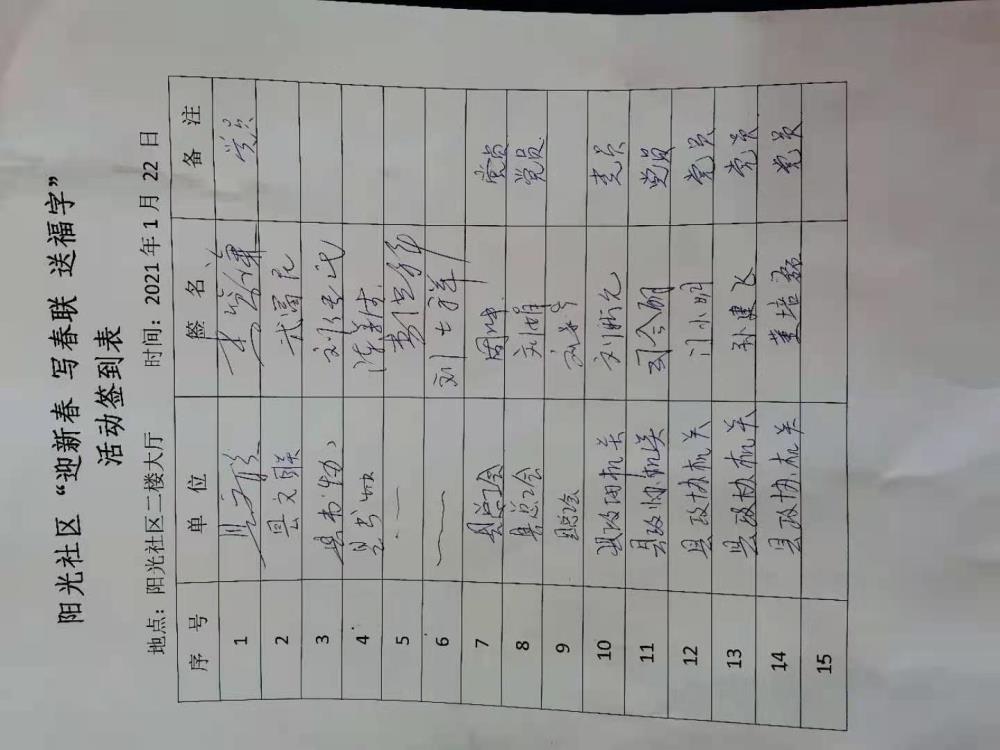 阳光社区 “迎新春 写春联 送福字”
活动签到表
地点：阳光社区二楼大厅 时间：2021年1月 22 日
序 号 单 位 签 名 备 注
1 党员
2 县文联 武富民
3 县书协
4 县书协
5
6 刘士祥
7 县总工会 周坤 党员
8 县总工会 刘娟 党员
9 县总工会
10 县政协机关 党员
11 县政协机关 司念朋 党员
12 县政协机关 门小明 党员
13 县政协机关 孙建飞 党员
14 县政协机关 党员
15